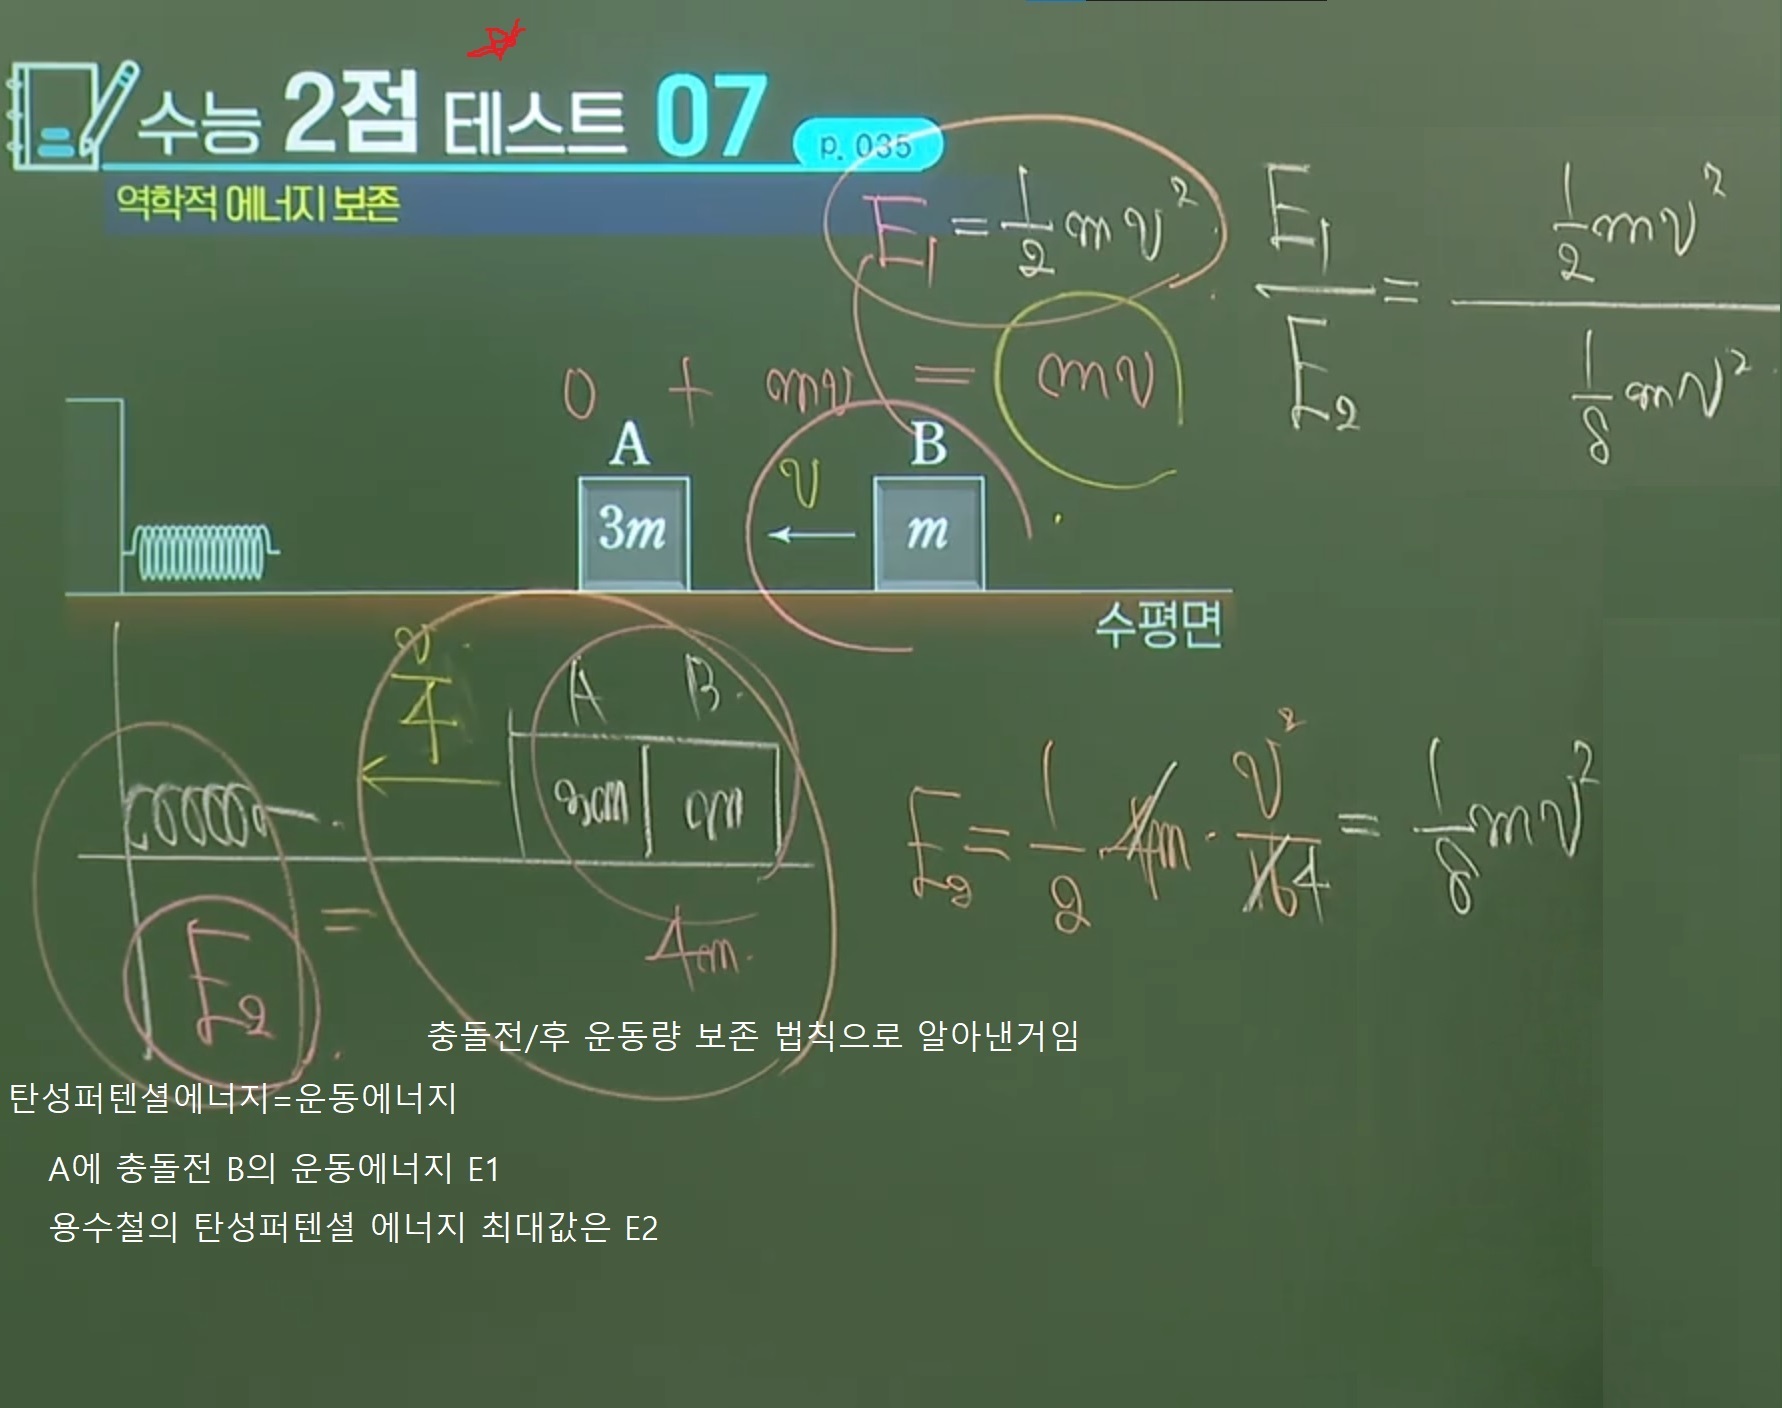 수능 2점 테스트 07 p. 035
역학적 에너지 보존
E₁ = 1/2 mv²
E₁/E₂ = (1/2 mv²)/(1/8 mv²)
0 + mv = mv
A B
v
3m m
수평면
v/4
A B
3m m
E₂ = 1/2 · 4m · v²/16 4 = 1/8 mv²
4m
E₂ =
충돌전/후 운동량 보존 법칙으로 알아낸거임
탄성퍼텐셜에너지=운동에너지
A에 충돌전 B의 운동에너지 E1
용수철의 탄성퍼텐셜 에너지 최대값은 E2